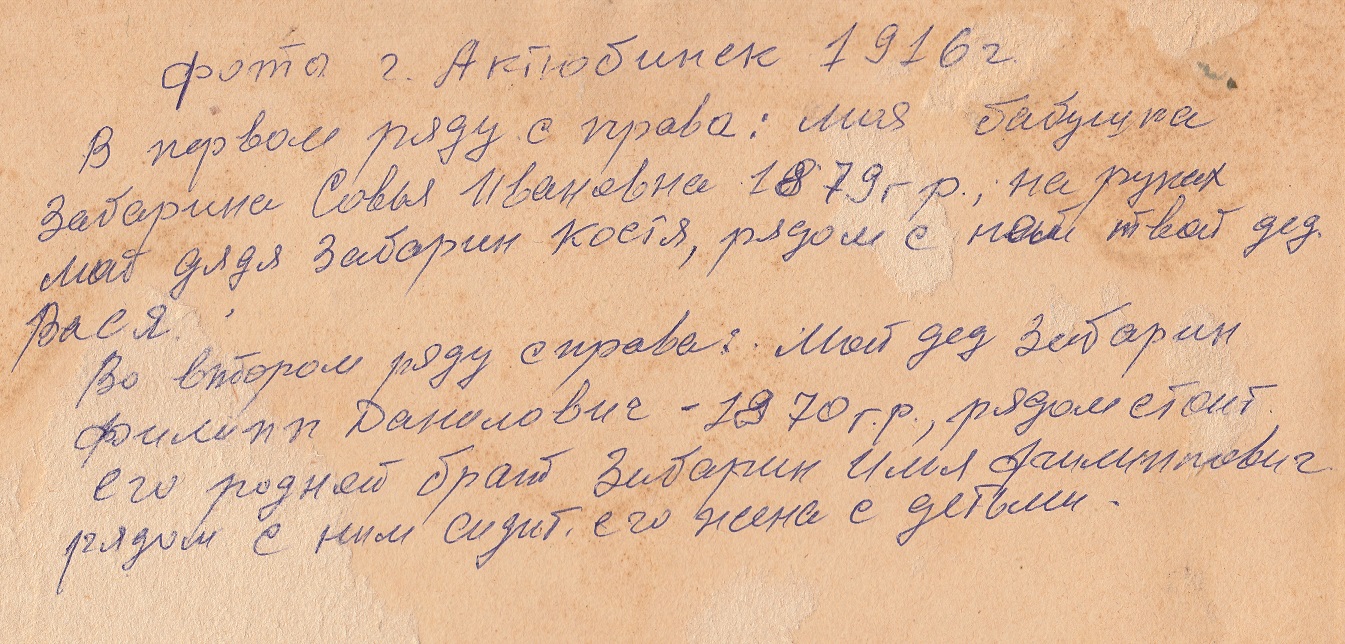 фото г. Актюбинск 1916 г
В первом ряду с права: моя бабушка
Забарина Совья Ивановна 1879 г р., на руках
мой дядя Забарин Костя, рядом с ней твой дед.
Вася.
Во втором ряду справа: Мой дед Забарин
Филипп Данилович - 1870 г.р., рядом стоит
его родной брат Забарин Имя Филиппович
рядом с ним сидит его жена с детьми.